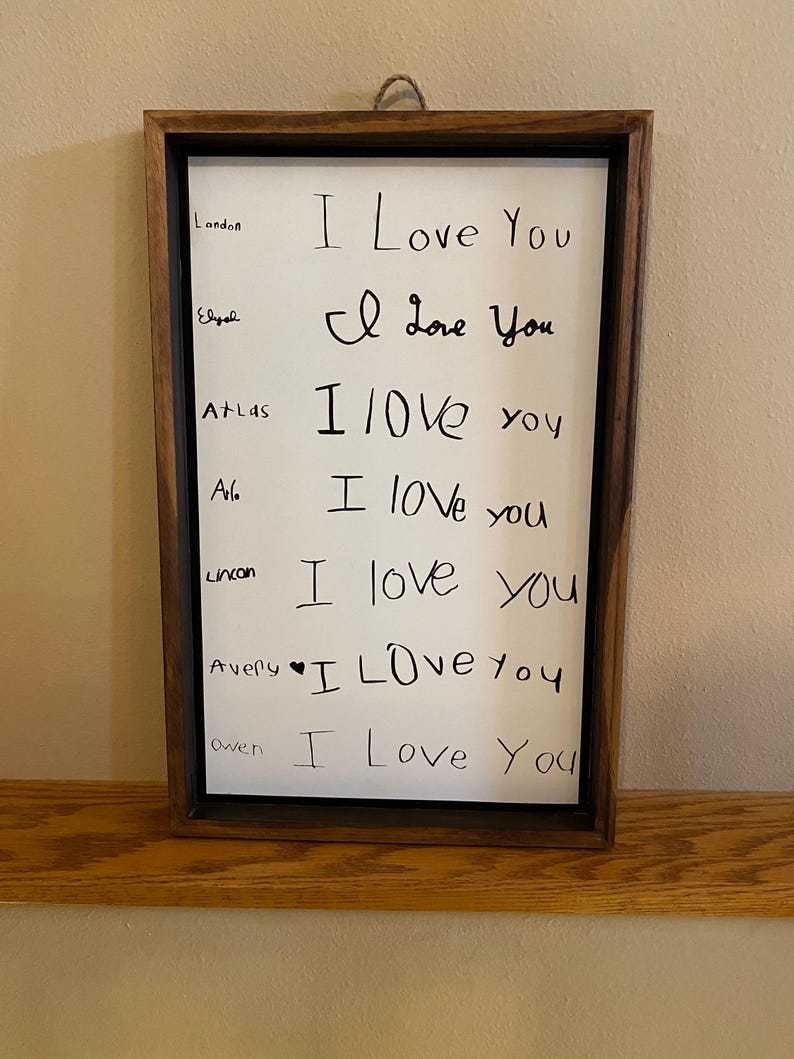 Landon I Love You
Elyah I Love You
Atlas I love you
Arlo I love you
Lincoln I love you
Avery ♥ I Love you
Owen I Love You